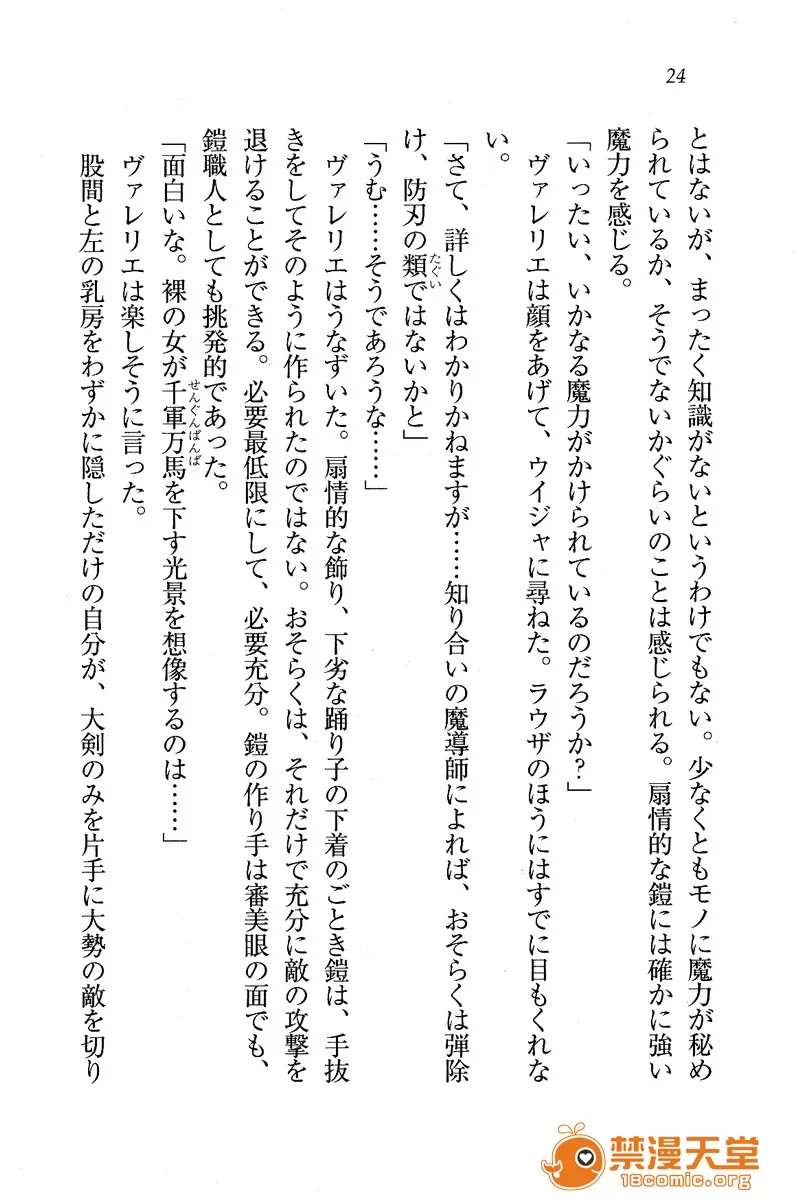 24
とはないが、まったく知識がないというわけでもない。少なくともモノに魔力が秘め
られているか、そうでないかぐらいのことは感じられる。扇情的な鎧には確かに強い
魔力を感じる。
「いったい、いかなる魔力がかけられているのだろうか?」
ヴァレリエは顔をあげて、ウイジャに尋ねた。ラウザのほうにはすでに目もくれな
い。
「さて、詳しくはわかりかねますが……知り合いの魔導師によれば、おそらくは弾除
け、防刃の類ではないかと」
たぐい
「うむ……そうであろうな……」
ヴァレリエはうなずいた。扇情的な飾り、下劣な踊り子の下着のごとき鎧は、手抜
きをしてそのように作られたのではない。おそらくは、それだけで充分に敵の攻撃を
退けることができる。必要最低限にして、必要充分。鎧の作り手は審美眼の面でも、
鎧職人としても挑発的であった。
「面白いな。裸の女が千軍万馬を下す光景を想像するのは……」
せんぐんばんば
ヴァレリエは楽しそうに言った。
股間と左の乳房をわずかに隠しただけの自分が、大剣のみを片手に大勢の敵を切り
禁漫天堂
18comic.org